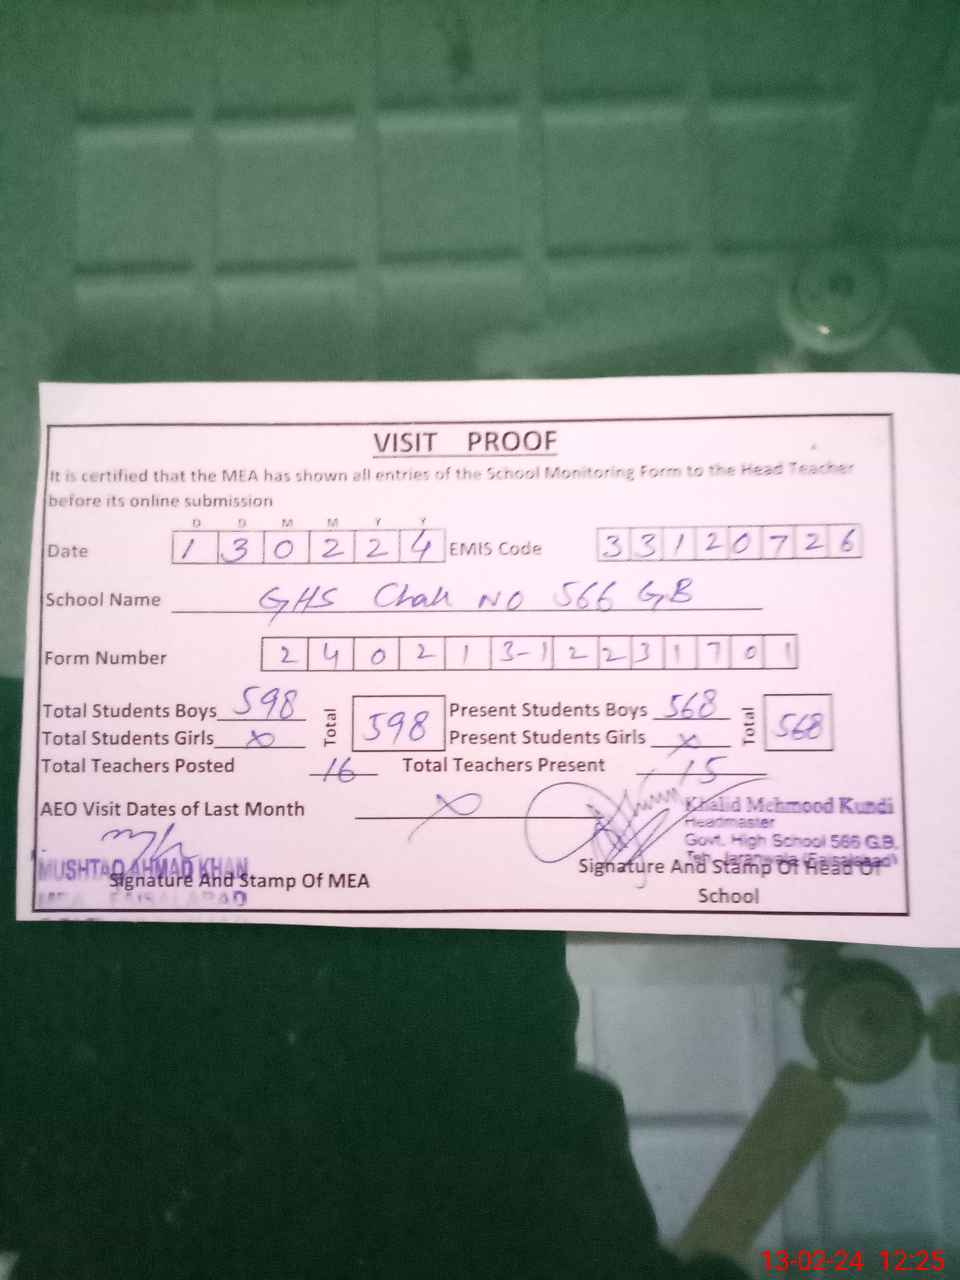 VISIT PROOF
It is certified that the MEA has shown all entries of the School Monitoring Form to the Head Teacher
before its online submission
D D M M Y Y
Date 1 3 0 2 2 4 EMIS Code 3 3 1 2 0 7 2 6
School Name GHS Chak NO 566 GB
Form Number 2 4 0 2 1 3-1 2 2 3 1 7 0 1
Total Students Boys 598 Total 598 Present Students Boys 568 Total 568
Total Students Girls x Present Students Girls x
Total Teachers Posted 16 Total Teachers Present 15
AEO Visit Dates of Last Month x
Khalid Mehmood Kundi
Headmaster
Govt. High School 566 G.B.
Teh. Jaranwala (Faisalabad)
MUSHTAQ AHMAD KHAN
Signature And Stamp Of MEA
MEA FAISALABAD
Signature And Stamp Of Head Of
School
13-02-24 12:25